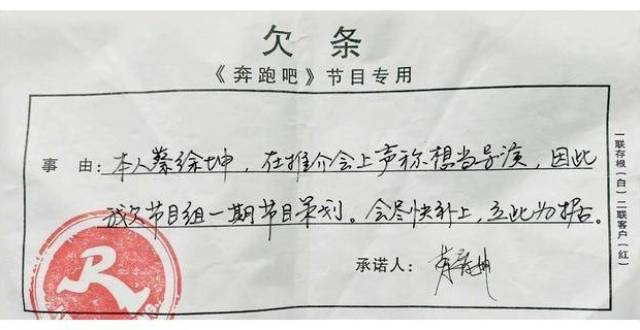 欠条
《奔跑吧》节目专用
事由：本人蔡徐坤，在推介会上声称想当导演，因此
我欠节目组一期节目策划。会尽快补上，立此为据。
承诺人：蔡徐坤
一联存根（白）二联客户（红）
R